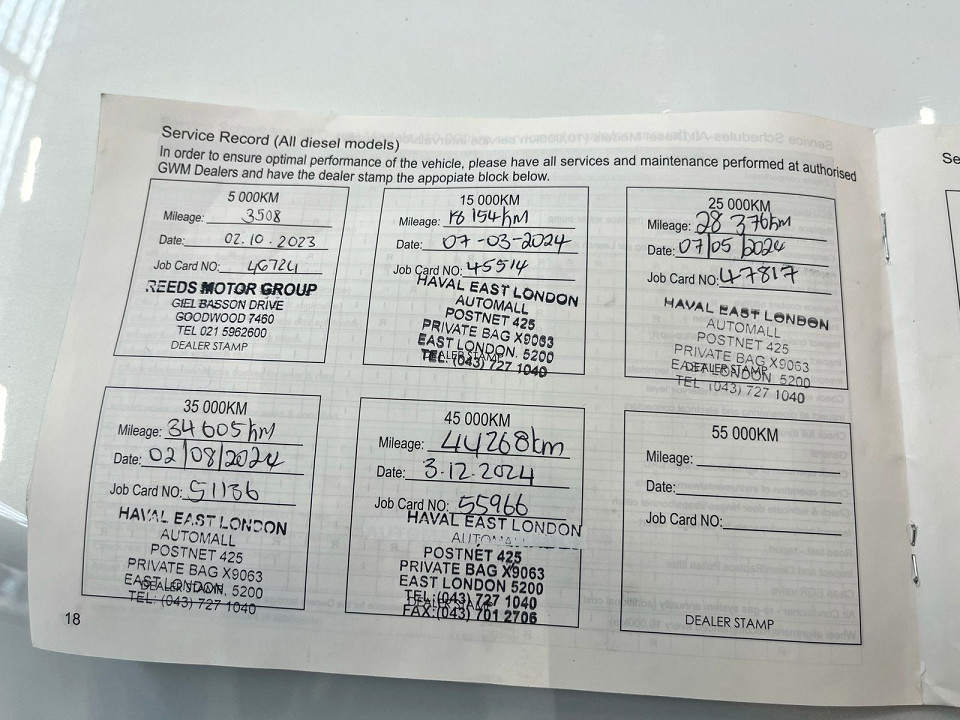 Service Record (All diesel models)
In order to ensure optimal performance of the vehicle, please have all services and maintenance performed at authorised
GWM Dealers and have the dealer stamp the appopiate block below.
5 000KM
Mileage: 3508
Date: 02.10.2023
Job Card NO: 46724
REEDS MOTOR GROUP
GIEL BASSON DRIVE
GOODWOOD 7460
TEL 021 5962600
DEALER STAMP
15 000KM
Mileage: 18 154km
Date: 07-03-2024
Job Card NO: 45514
HAVAL EAST LONDON
AUTOMALL
POSTNET 425
PRIVATE BAG X9063
EAST LONDON, 5200
DEALER STAMP
TEL: (043) 727 1040
25 000KM
Mileage: 28 376km
Date: 07/05/2024
Job Card NO: 47817
HAVAL EAST LONDON
AUTOMALL
POSTNET 425
PRIVATE BAG X9063
EAST LONDON 5200
DEALER STAMP
TEL (043) 727 1040
35 000KM
Mileage: 34 605km
Date: 02/08/2024
Job Card NO: 51136
HAVAL EAST LONDON
AUTOMALL
POSTNET 425
PRIVATE BAG X9063
EAST LONDON, 5200
DEALER STAMP
TEL: (043) 727 1040
45 000KM
Mileage: 44268km
Date: 3.12.2024
Job Card NO: 55966
HAVAL EAST LONDON
AUTOMALL
POSTNET 425
PRIVATE BAG X9063
EAST LONDON 5200
TEL: (043) 727 1040
DEALER STAMP
FAX: (043) 701 2706
55 000KM
Mileage:
Date:
Job Card NO:
DEALER STAMP
18
Se